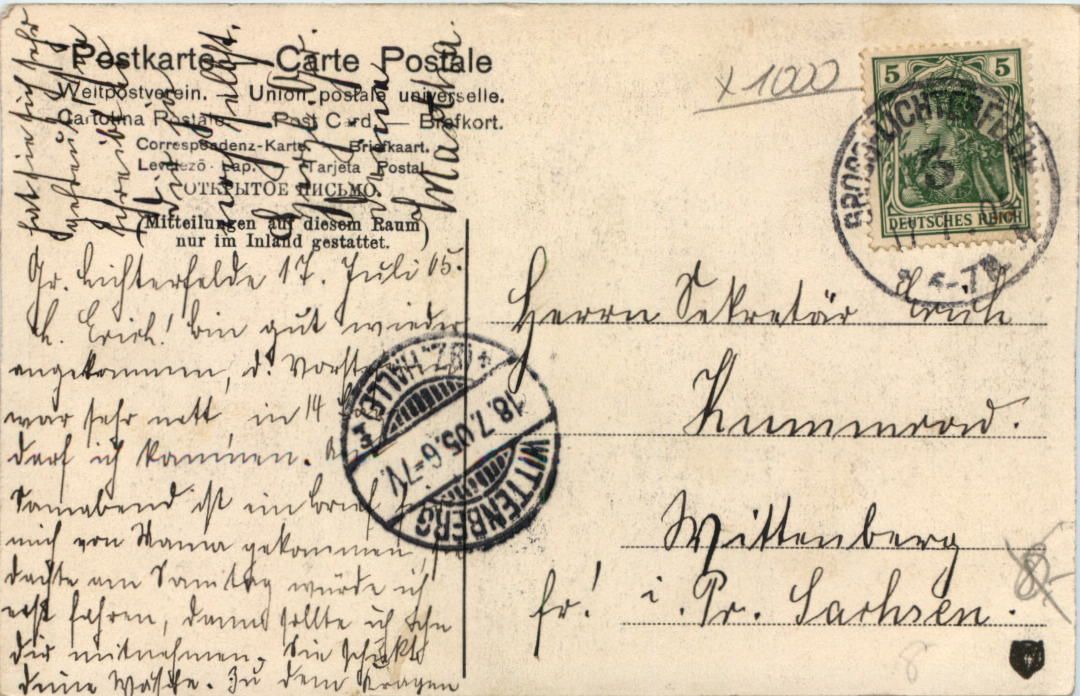 Postkarte — Carte Postale
Weltpostverein. — Union postale universelle.
Cartolina Postale — Post Card — Briefkort.
Correspondenz-Karte — Briefkaart.
Levelező-Lap. — Tarjeta Postal
ОТКРЫТОЕ ПИСЬМО.
(Mitteilungen auf diesem Raum
nur im Inland gestattet.)
Gr. Lichterfelde 17. Juli 05.
L. Erich! bin gut wieder
angekommen, d. Vorst
war sehr nett, in 14
darf ich kommen.
Sonnabend ist ein Brief
mich von Mama gekommen,
dachte am Sonntag würde ich
erst fahren, dann sollte ich Ihn
Dir mitnehmen. Sie schickt
deine Wäsche. Zu dem Kragen
hat sie sich sehr
gefreut
schreib
Dir
Martha
x 1000
5 5
DEUTSCHES REICH
GROSS-LICHTERFELDE
3
6-7N
Herrn Sekretär Erich
Kummrow.
Wittenberg
fr! i. Pr. Sachsen.
WITTENBERG
(BZ. HALLE)
18.7.05. 6-7V.
8,-
8